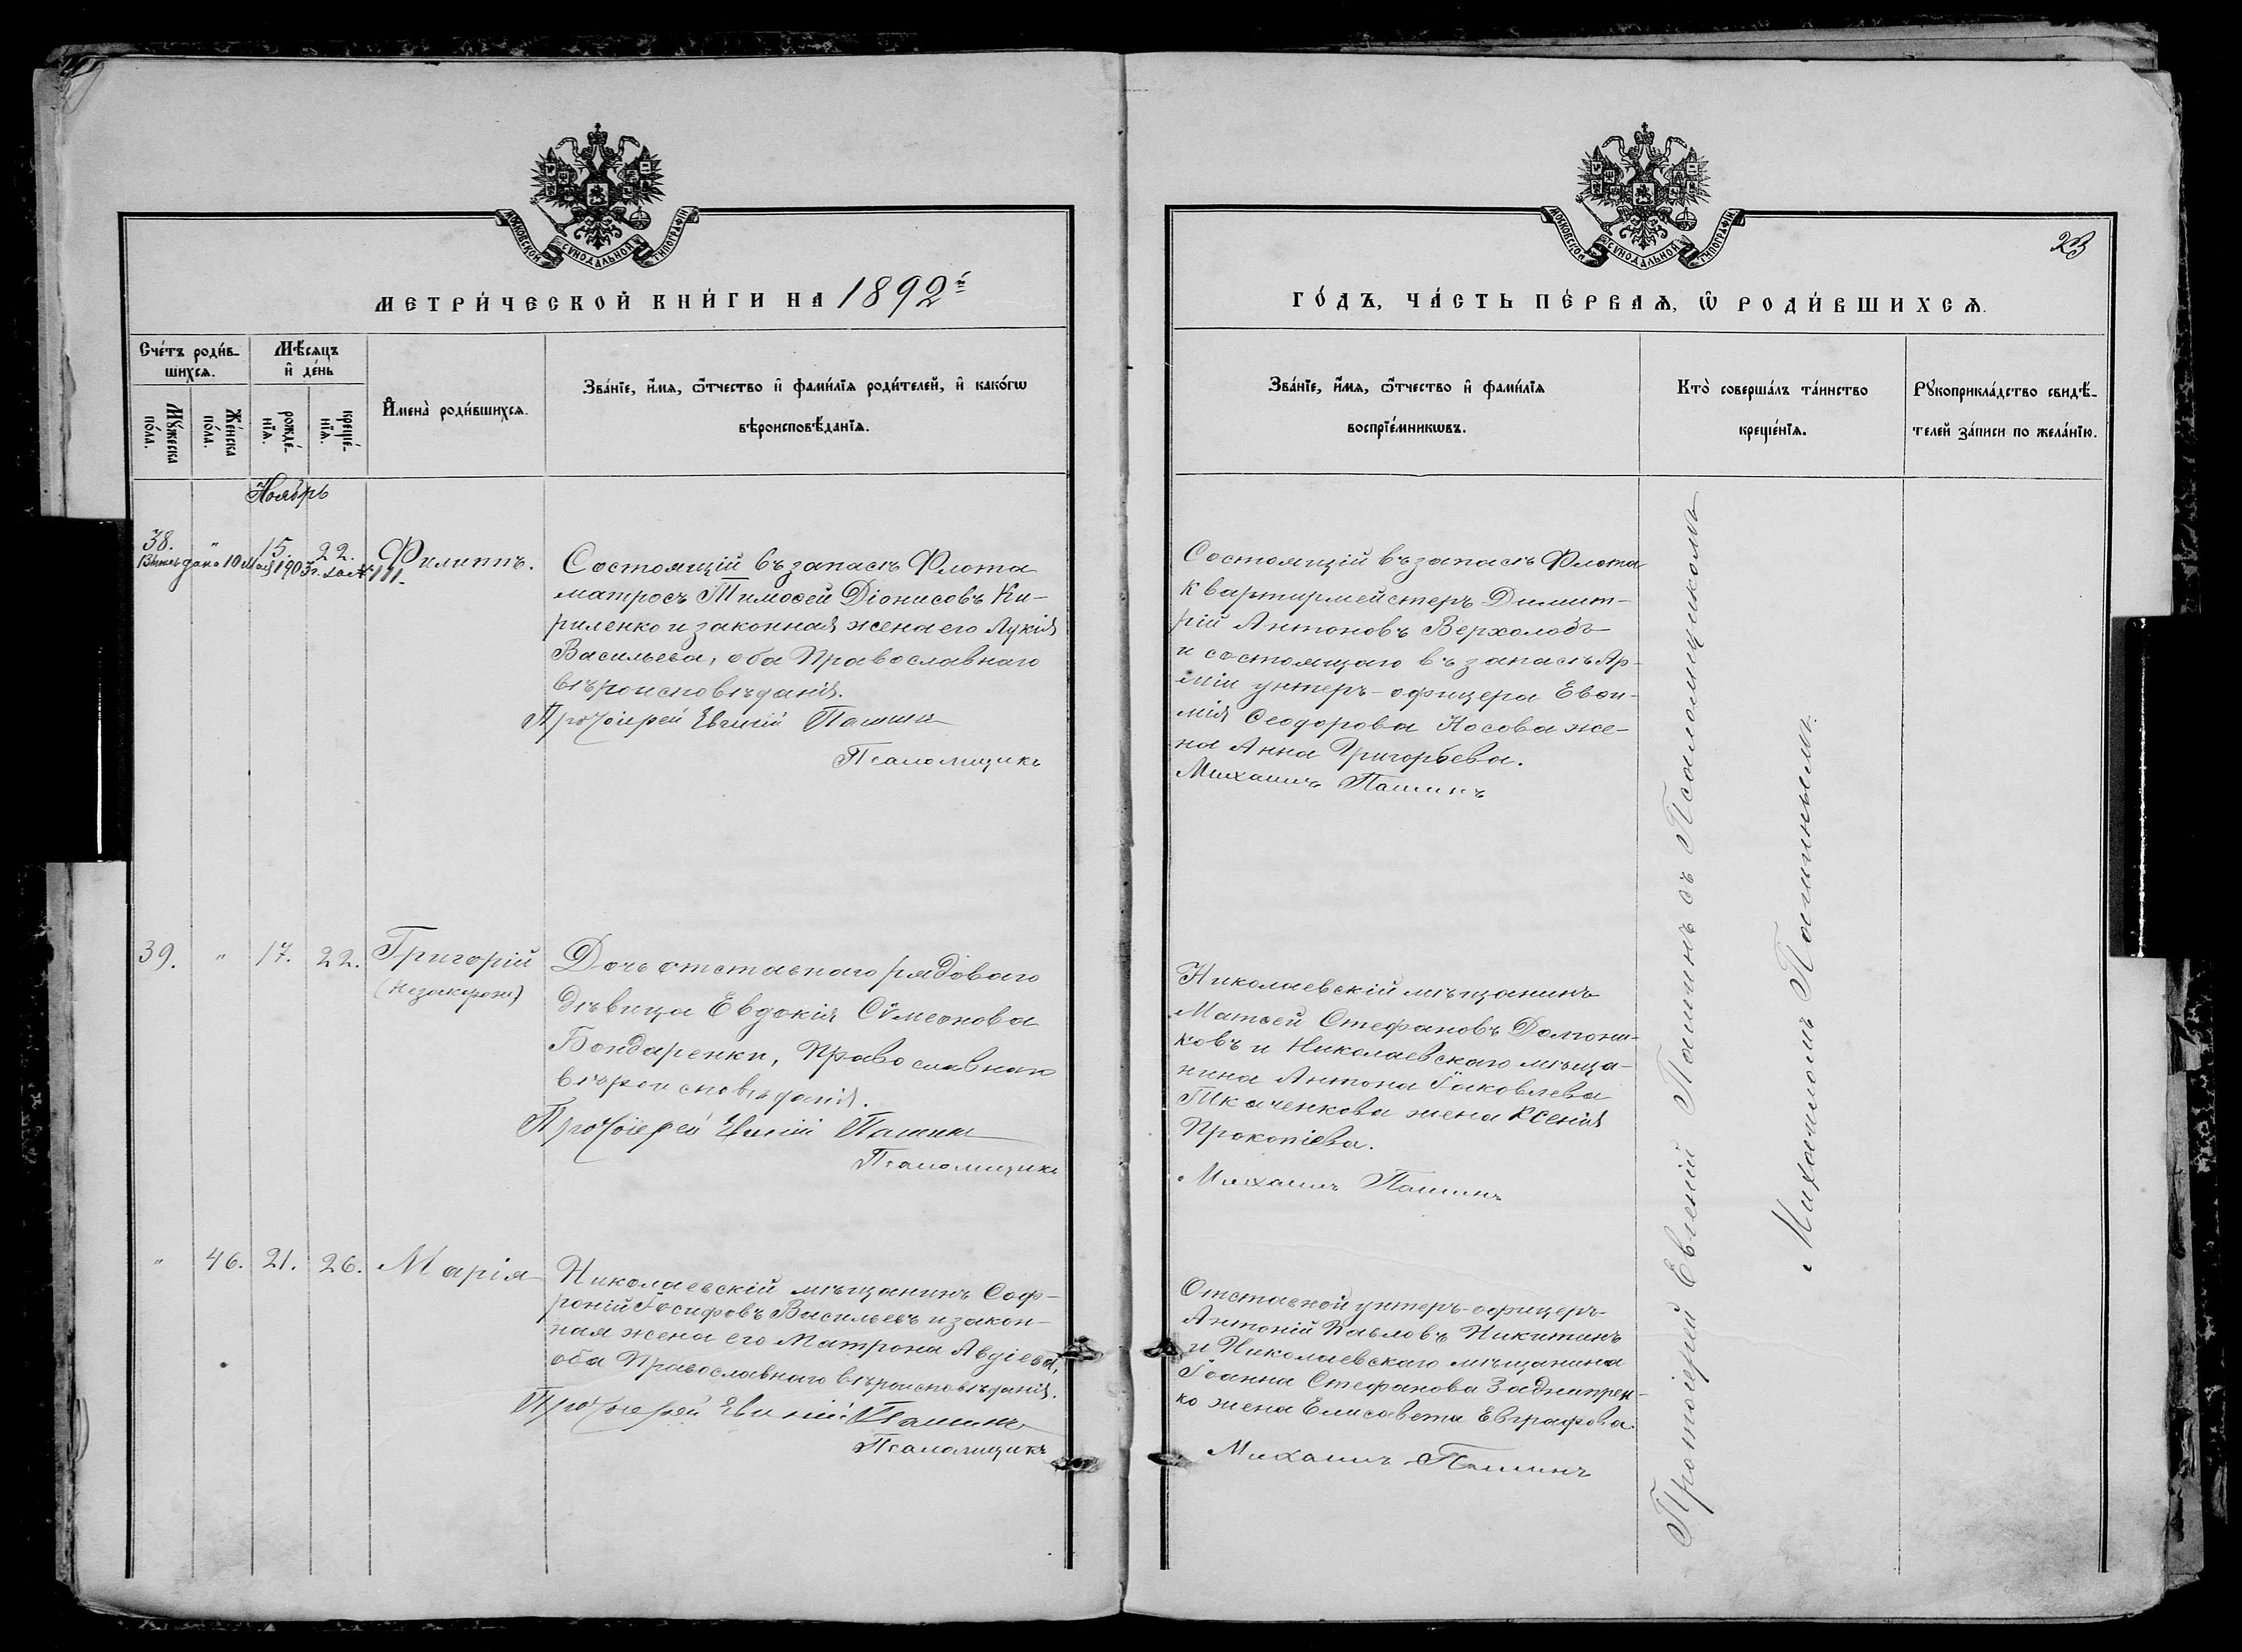 МОСКОВСКОЙ СѴНОДАЛЬНОЙ ТИПОГРАФІИ
МЕТРИ́ЧЕСКОЙ КНИ́ГИ НА 1892й
Сче́тъ роди́вшихсѧ.
Мѣ́сѧцъ и҆ де́нь
Мꙋ́жеска по́ла.
Же́нска по́ла.
рожде́нїѧ.
креще́нїѧ.
И҆мена̀ роди́вшихсѧ.
Зва́нїе, и҆́мѧ, ѻ҆́тчество и҆ фами́лїѧ роди́телей, и҆ како́гѡ
вѣроисповѣ́данїѧ.
Ноябрь
38. " 15. 22. Филиппъ.
дана 10 Мая 1903г. за № 111.
Состоящій въ запасѣ Флота
матросъ Тимоѳей Діонисовъ Ки-
риленко и законная жена его Лукія
Васильева, оба Православнаго
вѣроисповѣданія.
Протоіерей Евгеній Пашинъ
Псаломщикъ
39. " 17. 22. Григорій
(Незаконрож)
Дочь отставнаго рядоваго
дѣвица Евдокія Сѵмеонова
Бондаренки, Православнаго
вѣроисповѣданія.
Протоіерей Евгеній Пашинъ
Псаломщикъ
" 46. 21. 26. Марія
Николаевскій мѣщанинъ Соф-
роній Іосифовъ Васильевъ и закон-
ная жена его Матрона Авдіева,
оба Православнаго вѣроисповѣданія.
Протоіерей Евгеній Пашинъ
Псаломщикъ
МОСКОВСКОЙ СѴНОДАЛЬНОЙ ТИПОГРАФІИ
23
ГО́ДЪ, ЧА́СТЬ ПЕ́РВАѦ, Ѡ҆ РОДИ́ВШИХСѦ.
Зва́нїе, и҆́мѧ, ѻ҆́тчество и҆ фами́лїѧ
воспрїе́мникѡвъ.
Кто̀ соверша́лъ та́инство
креще́нїѧ.
Рꙋкоприкла́дство свидѣ́-
телей за́писи по жела́нїю.
Состоящій въ запасѣ Флота
Квартирмейстеръ Димит-
рій Антоновъ Верхолобъ
и состоящаго въ запасѣ Ар-
міи унтеръ-офицера Евѳи-
мія Ѳеодорова Носова же-
на Анна Григорьева.
Михаилъ Пашинъ
Николаевскій мѣщанинъ
Матѳей Стефановъ
и Николаевскаго мѣща-
нина Антона Іаковлева
Ткаченкова жена Ксенія
Прокопіева.
Михаилъ Пашинъ
Отставной унтеръ-офицеръ
Антоній Павловъ Никитинъ
и Николаевскаго мѣщанина
Іоанна Стефанова Заднипрен-
ко жена Елисавета Евграфова.
Михаилъ Пашинъ
Протоіерей Евгеній Пашинъ съ Псаломщикомъ
Михаиломъ Пашинымъ.